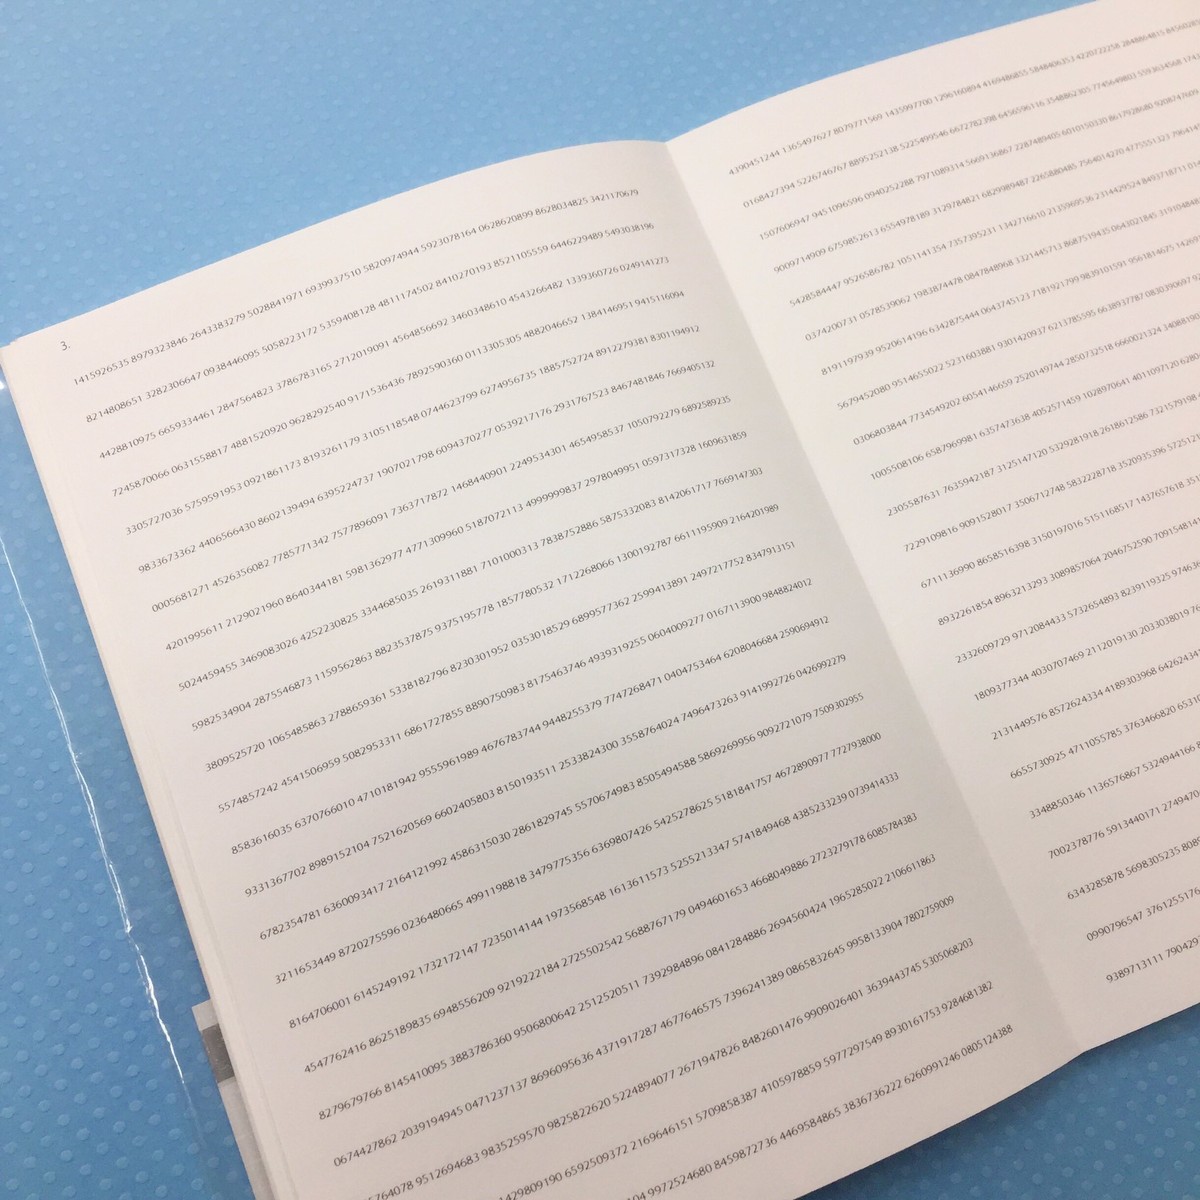 3.
1415926535 8979323846 2643383279 5028841971 6939937510 5820974944 5923078164 0628620899 8628034825 3421170679
8214808651 3282306647 0938446095 5058223172 5359408128 4811174502 8410270193 8521105559 6446229489 5493038196
4428810975 6659334461 2847564823 3786783165 2712019091 4564856692 3460348610 4543266482 1339360726 0249141273
7245870066 0631558817 4881520920 9628292540 9171536436 7892590360 0113305305 4882046652 1384146951 9415116094
3305727036 5759591953 0921861173 8193261179 3105118548 0744623799 6274956735 1885752724 8912279381 8301194912
9833673362 4406566430 8602139494 6395224737 1907021798 6094370277 0539217176 2931767523 8467481846 7669405132
0005681271 4526356082 7785771342 7577896091 7363717872 1468440901 2249534301 4654958537 1050792279 6892589235
4201995611 2129021960 8640344181 5981362977 4771309960 5187072113 4999999837 2978049951 0597317328 1609631859
5024459455 3469083026 4252230825 3344685035 2619311881 7101000313 7838752886 5875332083 8142061717 7669147303
5982534904 2875546873 1159562863 8823537875 9375195778 1857780532 1712268066 1300192787 6611195909 2164201989
3809525720 1065485863 2788659361 5338182796 8230301952 0353018529 6899577362 2599413891 2497217752 8347913151
5574857242 4541506959 5082953311 6861727855 8890750983 8175463746 4939319255 0604009277 0167113900 9848824012
8583616035 6370766010 4710181942 9555961989 4676783744 9448255379 7747268471 0404753464 6208046684 2590694912
9331367702 8989152104 7521620569 6602405803 8150193511 2533824300 3558764024 7496473263 9141992726 0426992279
6782354781 6360093417 2164121992 4586315030 2861829745 5570674983 8505494588 5869269956 9092721079 7509302955
3211653449 8720275596 0236480665 4991198818 3479775356 6369807426 5425278625 5181841757 4672890977 7727938000
8164706001 6145249192 1732172147 7235014144 1973568548 1613611573 5255213347 5741849468 4385233239 0739414333
4547762416 8625189835 6948556209 9219222184 2725502542 5688767179 0494601653 4668049886 2723279178 6085784383
8279679766 8145410095 3883786360 9506800642 2512520511 7392984896 0841284886 2694560424 1965285022 2106611863
0674427862 2039194945 0471237137 8696095636 4371917287 4677646575 7396241389 0865832645 9958133904 7802759009
5764078 9512694683 9835259570 9825822620 5224894077 2671947826 8482601476 9909026401 3639443745 5305068203
1429809190 6592509372 2169646151 5709858387 4105978859 5977297549 8930161753 9284681382
104 9972524680 8459872736 4469584865 3836736222 6260991246 0805124388
4390451244 1365497627 8079771569 1435997700 1296160894 4169486855 5848406353 4220722258 2848864815 84560285
0168427394 5226746767 8895252138 5225499546 6672782398 6456596116 3548862305 7745649803 5593634568 1743
1507606947 9451096596 0940252288 7971089314 5669136867 2287489405 6010150330 8617928680 9208747609
9009714909 6759852613 6554978189 3129784821 6829989487 2265880485 7564014270 4775551323 796414
5428584447 9526586782 1051141354 7357395231 1342716610 2135969536 2314429524 8493718711 01
0374200731 0578539062 1983874478 0847848968 3321445713 8687519435 0643021845 31910484
8191197939 9520614196 6342875444 0643745123 7181921799 9839101591 9561814675 14269
5679452080 9514655022 5231603881 9301420937 6213785595 6638937787 0830390697 92
0306803844 7734549202 6054146659 2520149744 2850732518 6660021324 34088190
1005508106 6587969981 6357473638 4052571459 1028970641 4011097120 6280
2305587631 7635942187 3125147120 5329281918 2618612586 7321579198
7229109816 9091528017 3506712748 5832228718 3520935396 572512
6711136990 8658516398 3150197016 5151168517 1437657618 351
8932261854 8963213293 3089857064 2046752590 70915481
2332609729 9712084433 5732654893 8239119325 97463
1809377344 4030707469 2112019130 2033038019 76
2131449576 8572624334 4189303968 64262434
6655730925 4711055785 3763466820 6531
3348850346 1136576867 5324944166 8
7002378776 5913440171 274947
6343285878 5698305235 808
0990796547 376125517
9389713111 790429